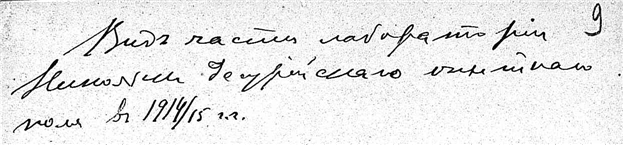 Видъ части лабораторіи 9
Николаи Уссурійскаго опытнаго
поля въ 1914/15 г.г.